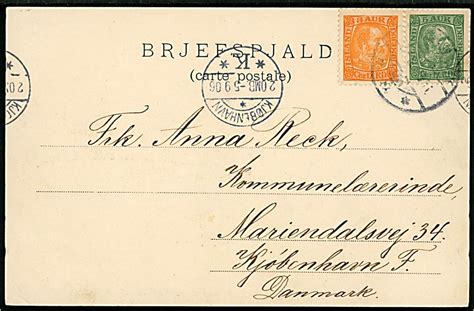 BRJEFSPJALD
(carte postale)
ISLAND 5 AUR
KJØBENHAVN
K
2.OMB -5.9.06
Frk. Anna Reck,
Kommunelærerinde,
Mariendalsvej 34.
Kjøbenhavn F.
Danmark.